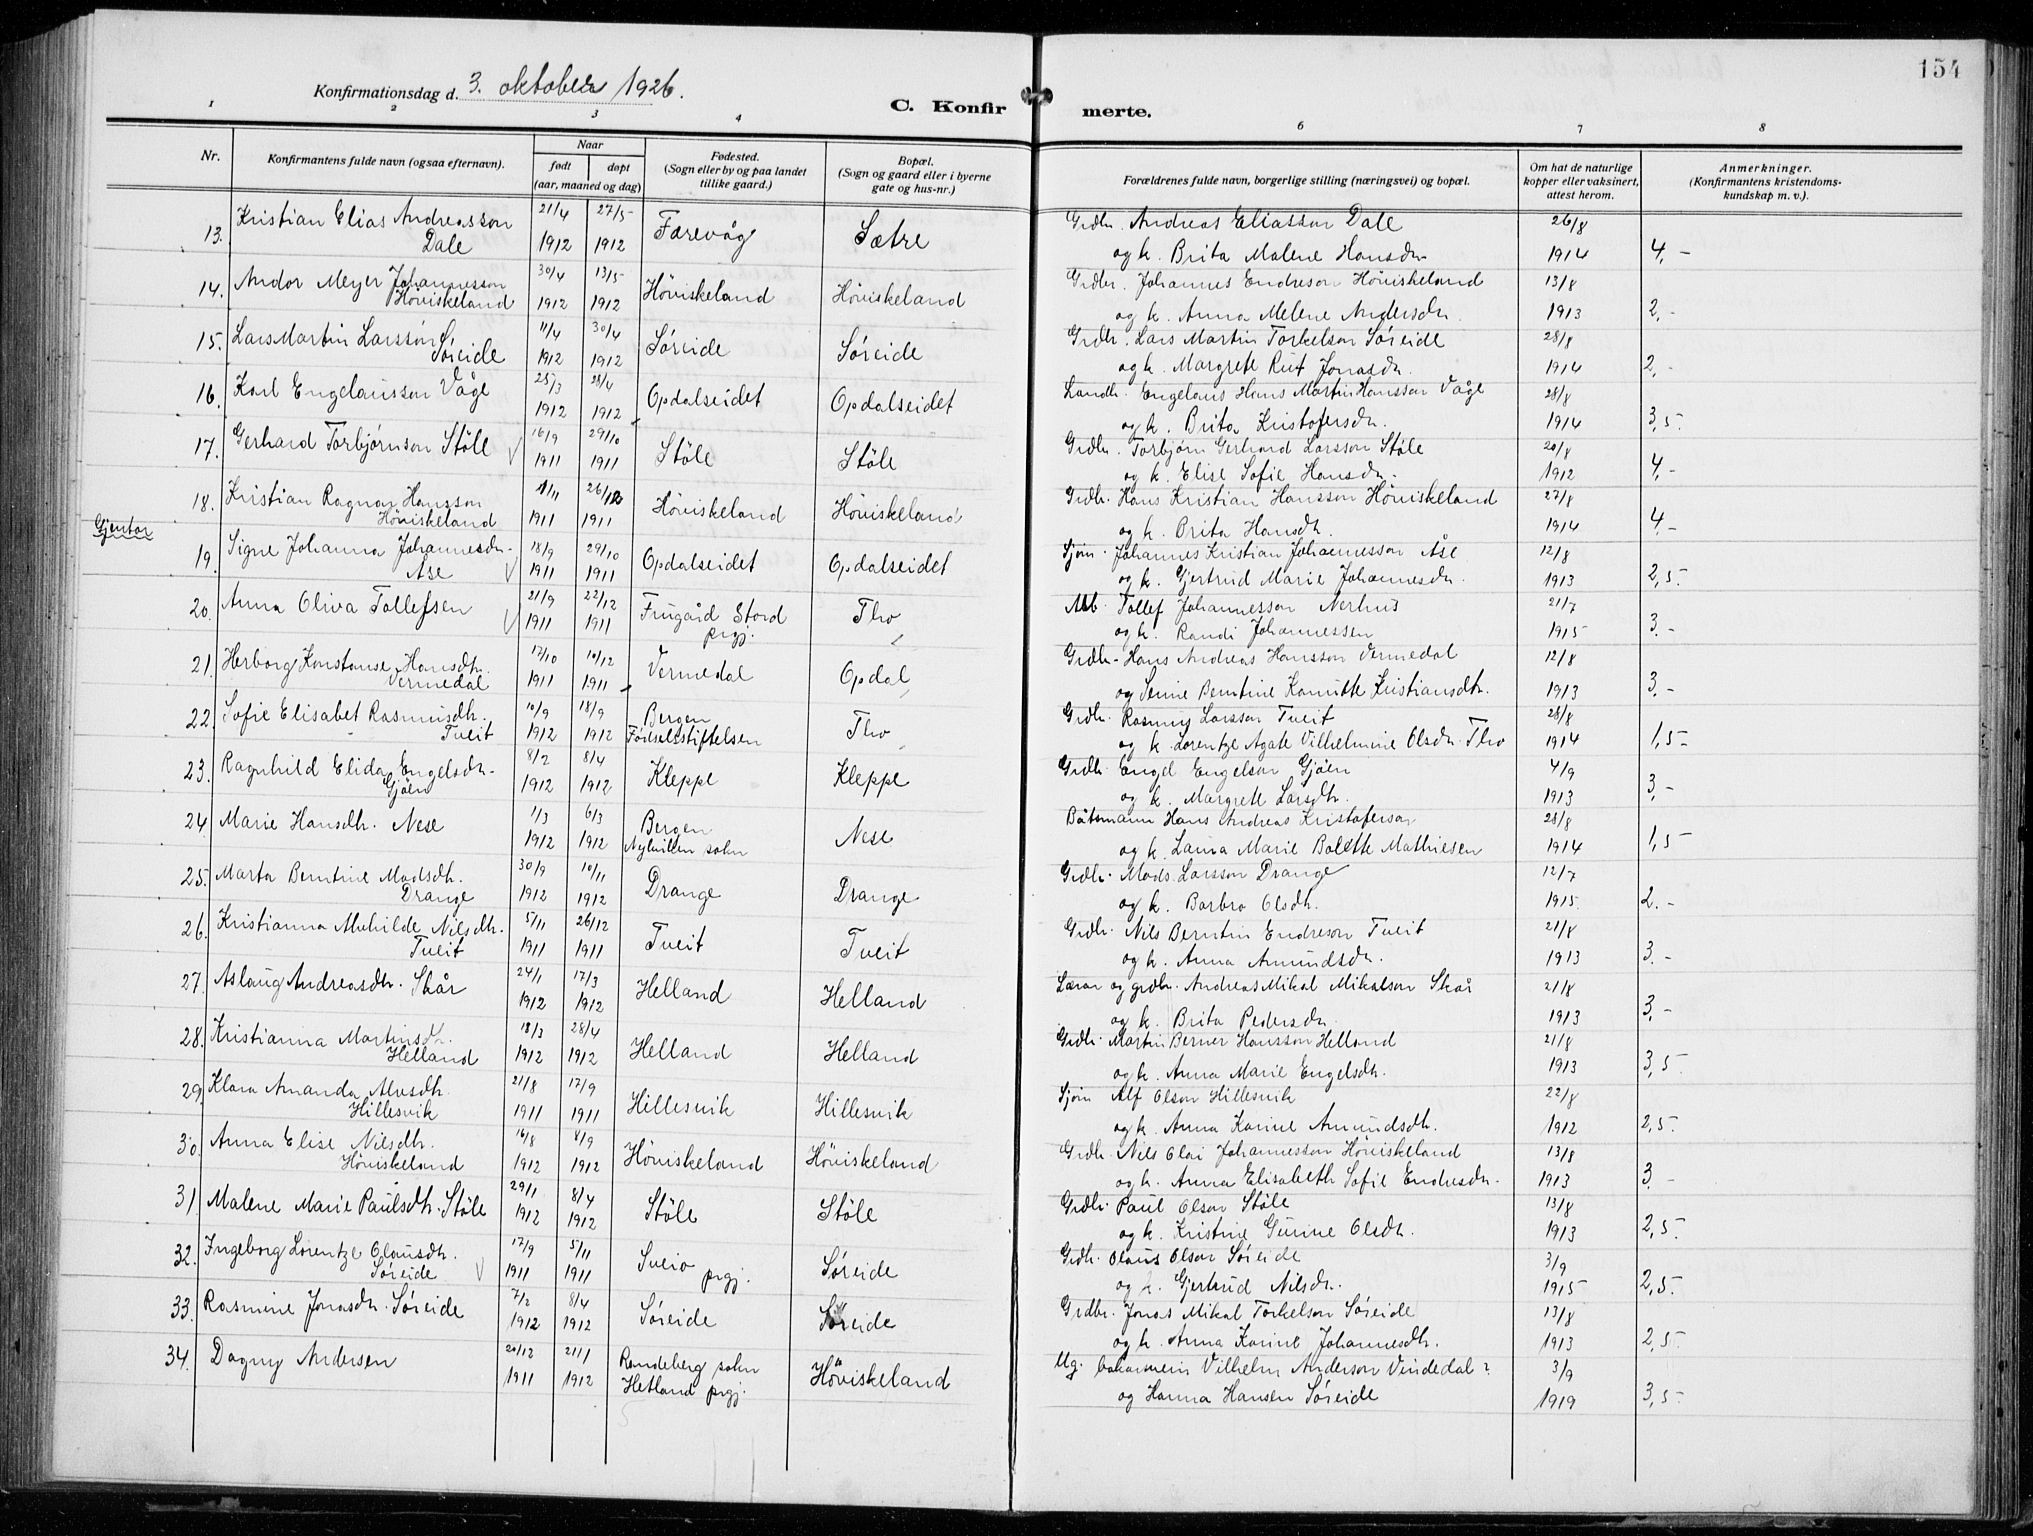 154
Konfirmationsdag d. 3. oktober 1926.
C. Konfirmerte.
1 2 3 4 6 7 8
Nr.
Konfirmantens fulde navn (ogsaa efternavn).
Naar
født døpt
(aar, maaned og dag)
Fødested.
(Sogn eller by og paa landet
tillike gaard.)
Bopæl.
(Sogn og gaard eller i byerne
gate og hus-nr.)
Forældrenes fulde navn, borgerlige stilling (næringsvei) og bopæl.
Om hat de naturlige
kopper eller vaksinert,
attest herom.
Anmerkninger.
(Konfirmantens kristendoms-
kundskap m. v.).
13. Kristian Elias Andreasson 21/4 27/5 Færevåg Sætre Grdbr. Andreas Eliasson Dale 26/8
Dale 1912 1912 og k. Brita Malene Hansdr. 1914 4,-
14. Andor Meyer Johannesson 30/4 13/5 Höviskeland Höviskeland Grdbr. Johannes Endreson Höviskeland 13/8
Höviskeland 1912 1912 og k. Anna Melene Andersdr. 1913 2,-
15. Lars Martin Larsson 11/4 30/4 Søreide Søreide Grdbr. Lars Martin Torkelson Søreide 28/8
Søreide 1912 1912 og k. Margrete Rut Jonasdr. 1914 2,-
16. Karl Engelausson Våge 25/3 28/4 Opdalseidet Opdalseidet Landh. Engelaus Hans Martin Hansson Våge 28/8
1912 1912 og k. Brita Kristofersdr. 1914 3,5-
17. Gerhard Torbjørnson Stöle 16/9 29/10 Stöle Stöle Grdbr. Torbjørn Gerhard Larsson Stöle 20/8
1911 1911 og k. Elise Sofie Hansdr. 1912 4,-
18. Kristian Ragnar Hansson 26/12 Höviskeland Höviskeland Grdbr. Hans Kristian Hansson Höviskeland 27/8
Höviskeland 1911 1911 og k. Brita Hansdtr. 1914 4,-
Gjentor
19. Signe Johanna Johannesdr. 18/9 29/10 Opdalseidet Opdalseidet Sjøm. Johannes Kristian Johannesson Åse 12/8
Åse 1911 1911 og k. Gjertrud Marie Johannesdr. 1913 2,5-
20. Anna Oliva Tollefsen 21/9 22/12 Frugård Stord Tho Tollef Johannesson Nerhus 21/7
1911 1911 prgj. og k. Randi Johannessen 1915 3,-
21. Herborg Konstanse Hansdtr. 17/10 10/12 Vermedal Opdal Grdbr. Hans Andreas Hansson Vermedal 12/8
Vermedal 1911 1911 og Bentine Kristiansdtr. 1913 3,-
22. Sofie Elisabet Rasmusdtr. 10/9 18/9 Bergen Tho Grdbr. Rasmus Larsson Tveit 28/8
Tveit 1912 1912 Fødselsstiftelsen og k. Lorentze Agate Vilhelmine Olsdr. Tho 1914 1,5-
23. Ragnhild Elida Engelsdtr. 8/2 8/4 Kleppe Kleppe Grdbr. Engel Engelson Gjöen 4/9
Gjöen 1912 1912 og k. Margrete Larsdtr. 1913 3,-
24 Marie Hansdtr. Nese 1/3 6/3 Bergen Nese Båtsmann Hans Andreas Kristoferson 28/8
1912 1912 sokn og k. Laura Marie Bolette Mathiesen 1914 1,5
25. Marta Berntine Madsdtr. 30/9 10/11 Drange Drange Grdbr. Mads Larsson Drange 12/7
Drange 1912 1912 og k. Barbro Olsdtr. 1915 2.-
26. Kristianna Mathilde Nilsdtr. 5/11 26/12 Tveit Tveit Grdbr. Nils Berntin Endreson Tveit 21/8
Tveit 1911 1911 og k. Anna Amundsdr. 1913 3.-
27. Aslaug Andreasdtr. Skår 24/1 17/3 Helland Helland Lærar og grdbr. Andreas Mikal Mikalson Skår 21/8
1912 1912 og k. Brita Pedersdr. 1913 3,-
28. Kristianna Martinsdtr. 18/3 28/4 Helland Helland Grdbr. Martin Berner Hansson Helland 21/8
Helland 1912 1912 og k. Anna Marie Engelsdtr. 1913 3,5-
29. Klara Amanda Alvsdtr. 21/8 17/9 Hillesvik Hillesvik Sjøm Alf Olson Hillesvik 22/8
Hillesvik 1911 1911 og k. Anna Karine Amundsdtr. 1912 2,5-
30. Anna Elise Nilsdtr. 16/8 8/9 Höviskeland Höviskeland Grdbr. Nils Olai Johannesson Höviskeland 13/8
Höviskeland 1912 1912 og k. Anna Elisabeth Sofie Endresdr. 1913 3 -
31 Malene Marie Paulsdtr. Stöle 29/1 8/4 Stöle Stöle Grdbr. Paul Olson Stöle 13/8
1912 1912 og k. Kristine Gurine Olsdtr. 1913 2,5-
32. Ingeborg Lorentze Olausdtr. 17/9 5/11 Sveio Søreide Grdbr. Olaus Olson Søreide 3/9
Søreide 1911 1911 prgj. og k. Gjertrud Nilsdr. 1915 2,5-
33. Rasmine Jonasdtr. Søreide 7/2 8/4 Søreide Søreide Grdbr. Jonas Mikal Torkelson Søreide 13/8
1912 1912 og k. Anna Karine Johannesdtr. 1913 2,5-
34. Dagny Andersen 20/12 21/1 Randeberg sokn Höviskeland Ug. Vilhelm Anderson Vindedal? 3/9
1911 1912 Hetland prgj. og Hanna Hansen Søreide 1919 3,5-